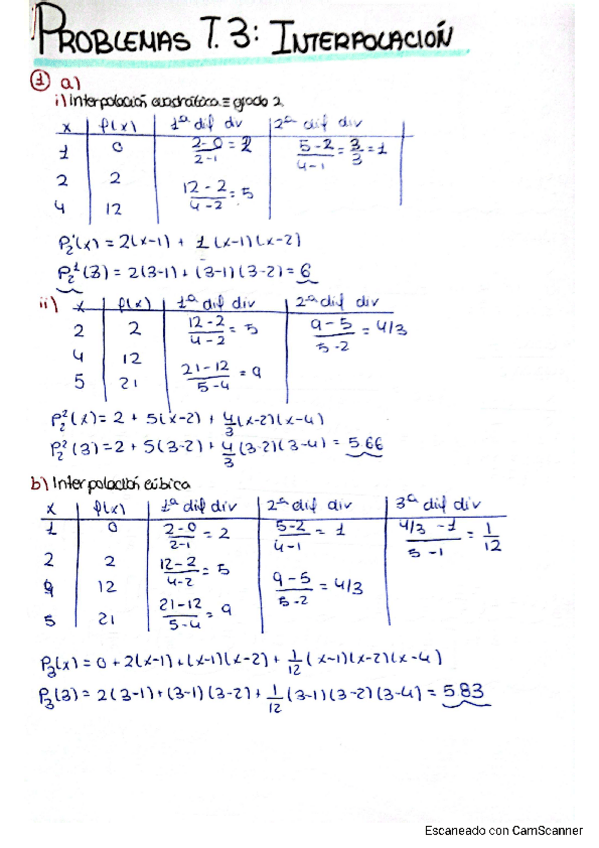 PROBLEMAS T.3: INTERPOLACIÓN
① a)
i) Interpolación cuadrática ≡ grado 2.
x | f(x) | 1ª dif div | 2ª dif div
1 | 0 | 2-0/2-1 = 2 | 5-2/4-1 = 3/3 = 1
2 | 2 | 12-2/4-2 = 5
4 | 12
P₂¹(x) = 2(x-1) + 1(x-1)(x-2)
P₂¹(3) = 2(3-1) + (3-1)(3-2) = 6
ii) x | f(x) | 1ª dif div | 2ª dif div
2 | 2 | 12-2/4-2 = 5 | 9-5/5-2 = 4/3
4 | 12 | 21-12/5-4 = 9
5 | 21
P₂²(x) = 2 + 5(x-2) + 4/3(x-2)(x-4)
P₂²(3) = 2 + 5(3-2) + 4/3(3-2)(3-4) = 5.66
b) Interpolación cúbica
x | f(x) | 1ª dif div | 2ª dif div | 3ª dif div
1 | 0 | 2-0/2-1 = 2 | 5-2/4-1 = 1 | 4/3-1/5-1 = 1/12
2 | 2 | 12-2/4-2 = 5 | 9-5/5-2 = 4/3
4 | 12 | 21-12/5-4 = 9
5 | 21
P₃(x) = 0 + 2(x-1) + (x-1)(x-2) + 1/12(x-1)(x-2)(x-4)
P₃(3) = 2(3-1) + (3-1)(3-2) + 1/12(3-1)(3-2)(3-4) = 5.83
Escaneado con CamScanner